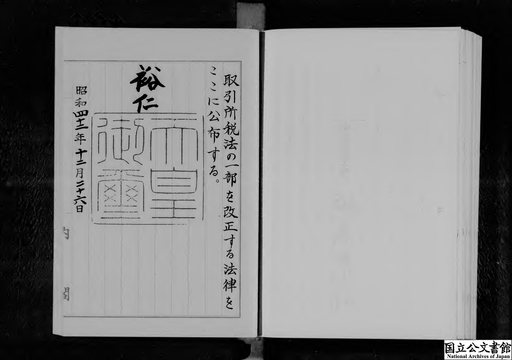 取引所税法の一部を改正する法律を
ここに公布する。
裕仁
天皇
御璽
昭和四十二年十二月二十六日
内閣
国立公文書館
National Archives of Japan